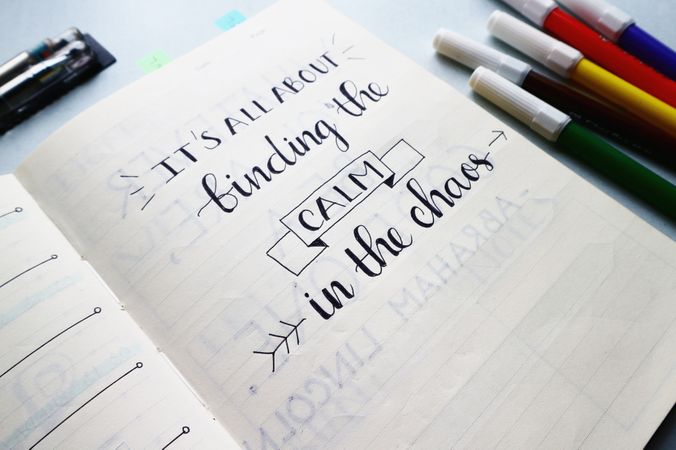 IT'S ALL ABOUT
finding the
CALM
in the chaos
-ABRAHAM LINCOLN